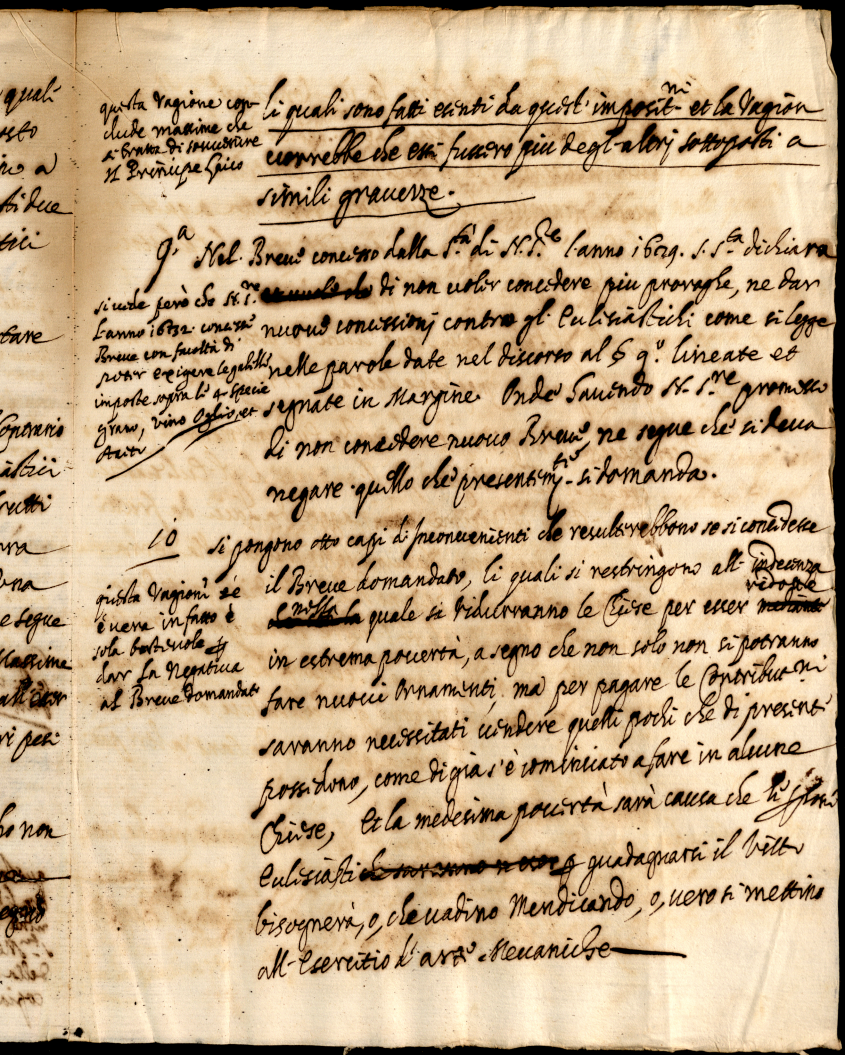 quali
a
tare
rutti
e segue
Massime
ho non
questa ragione con-
clude massime che
si tratta di souvenire
il Principe laico
li quali sono fatti esenti da quest' imposit.ni et la ragion
vorrebbe che essi fussero piu degl'altri sottoposti a
simili gravezze.
9.a Nel Breve concesso dalla S.tà di N. S.re l'anno 1629. S. S.tà dichiara
di non voler concedere piu proroghe, ne dar
nuove concessioni contro gl' Eclesiastichi come si legge
nelle parole date nel discorso al § 9.o lineate et
segnate in Margine. Onde havendo N. S.re promesso
di non concedere nuovo Breve, ne segue che si deva
negare quello che presentem.te si domanda.
si vede però che N. S.re
l'anno 1632 concesse
Breve con facoltà di
poter exigere le gabelle
imposte sopra le 4 specie
grano, vino, oglio, et
10 si pongono otto capi d'inconvenienti che resulterebbono se si concedesse
il Breve domandato, li quali si restringono all' indecenza
nella quale si ridurranno le Chiese per esser ridotte
in estrema povertà, a segno che non solo non si potranno
fare nuovi ornamenti, ma per pagare le Contributni
saranno necessitati vendere quelli pochi che di presente
possedono, come di già s'è cominciato a fare in alcune
Chiese, Et la medesima povertà sarà causa che li
Eclesiasti guadagnarsi il vitto
bisognerà, o, che vadino Mendicando, o, vero si mettino
all' esercitio d' arte Mecaniche
questa ragione se
è vera in fatto è
sola bastevole p
dar la Negativa
al Breve domandato